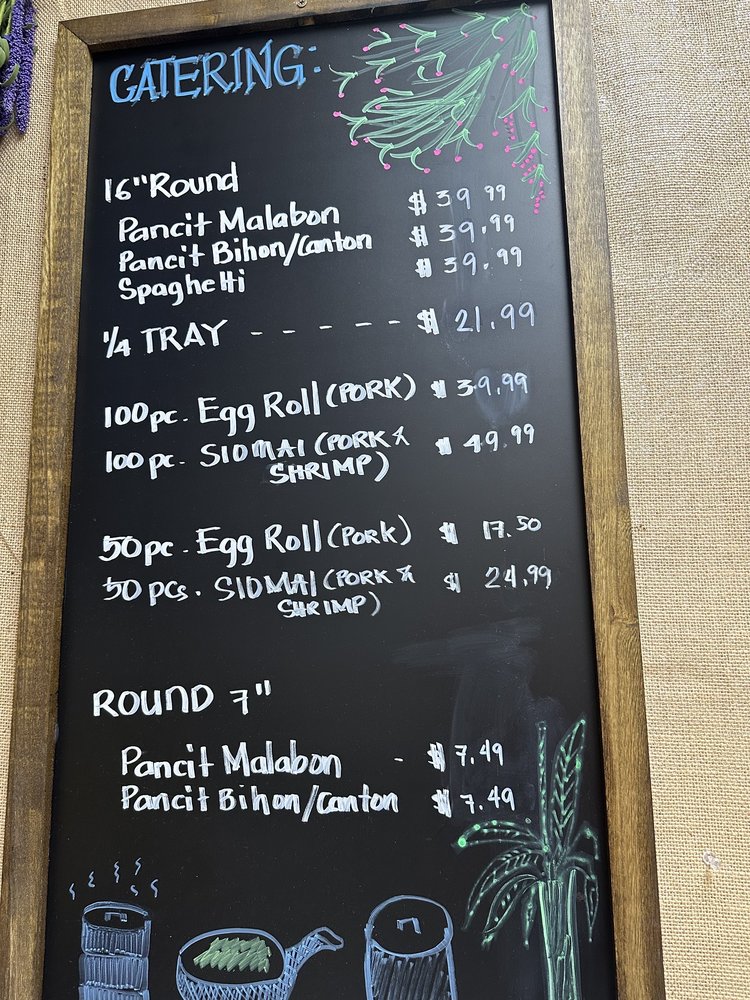 CATERING:
16" Round
Pancit Malabon $39.99
Pancit Bihon/Canton $39.99
Spaghetti $39.99
1/4 TRAY - - - - - $21.99
100pc. Egg Roll (PORK) $39.99
100 pc. SIOMAI (PORK & $49.99
SHRIMP)
50pc. Egg Roll (Pork) $17.50
50 pcs. SIOMAI (PORK & $24.99
SHRIMP)
ROUND 7"
Pancit Malabon - $7.49
Pancit Bihon/Canton $7.49